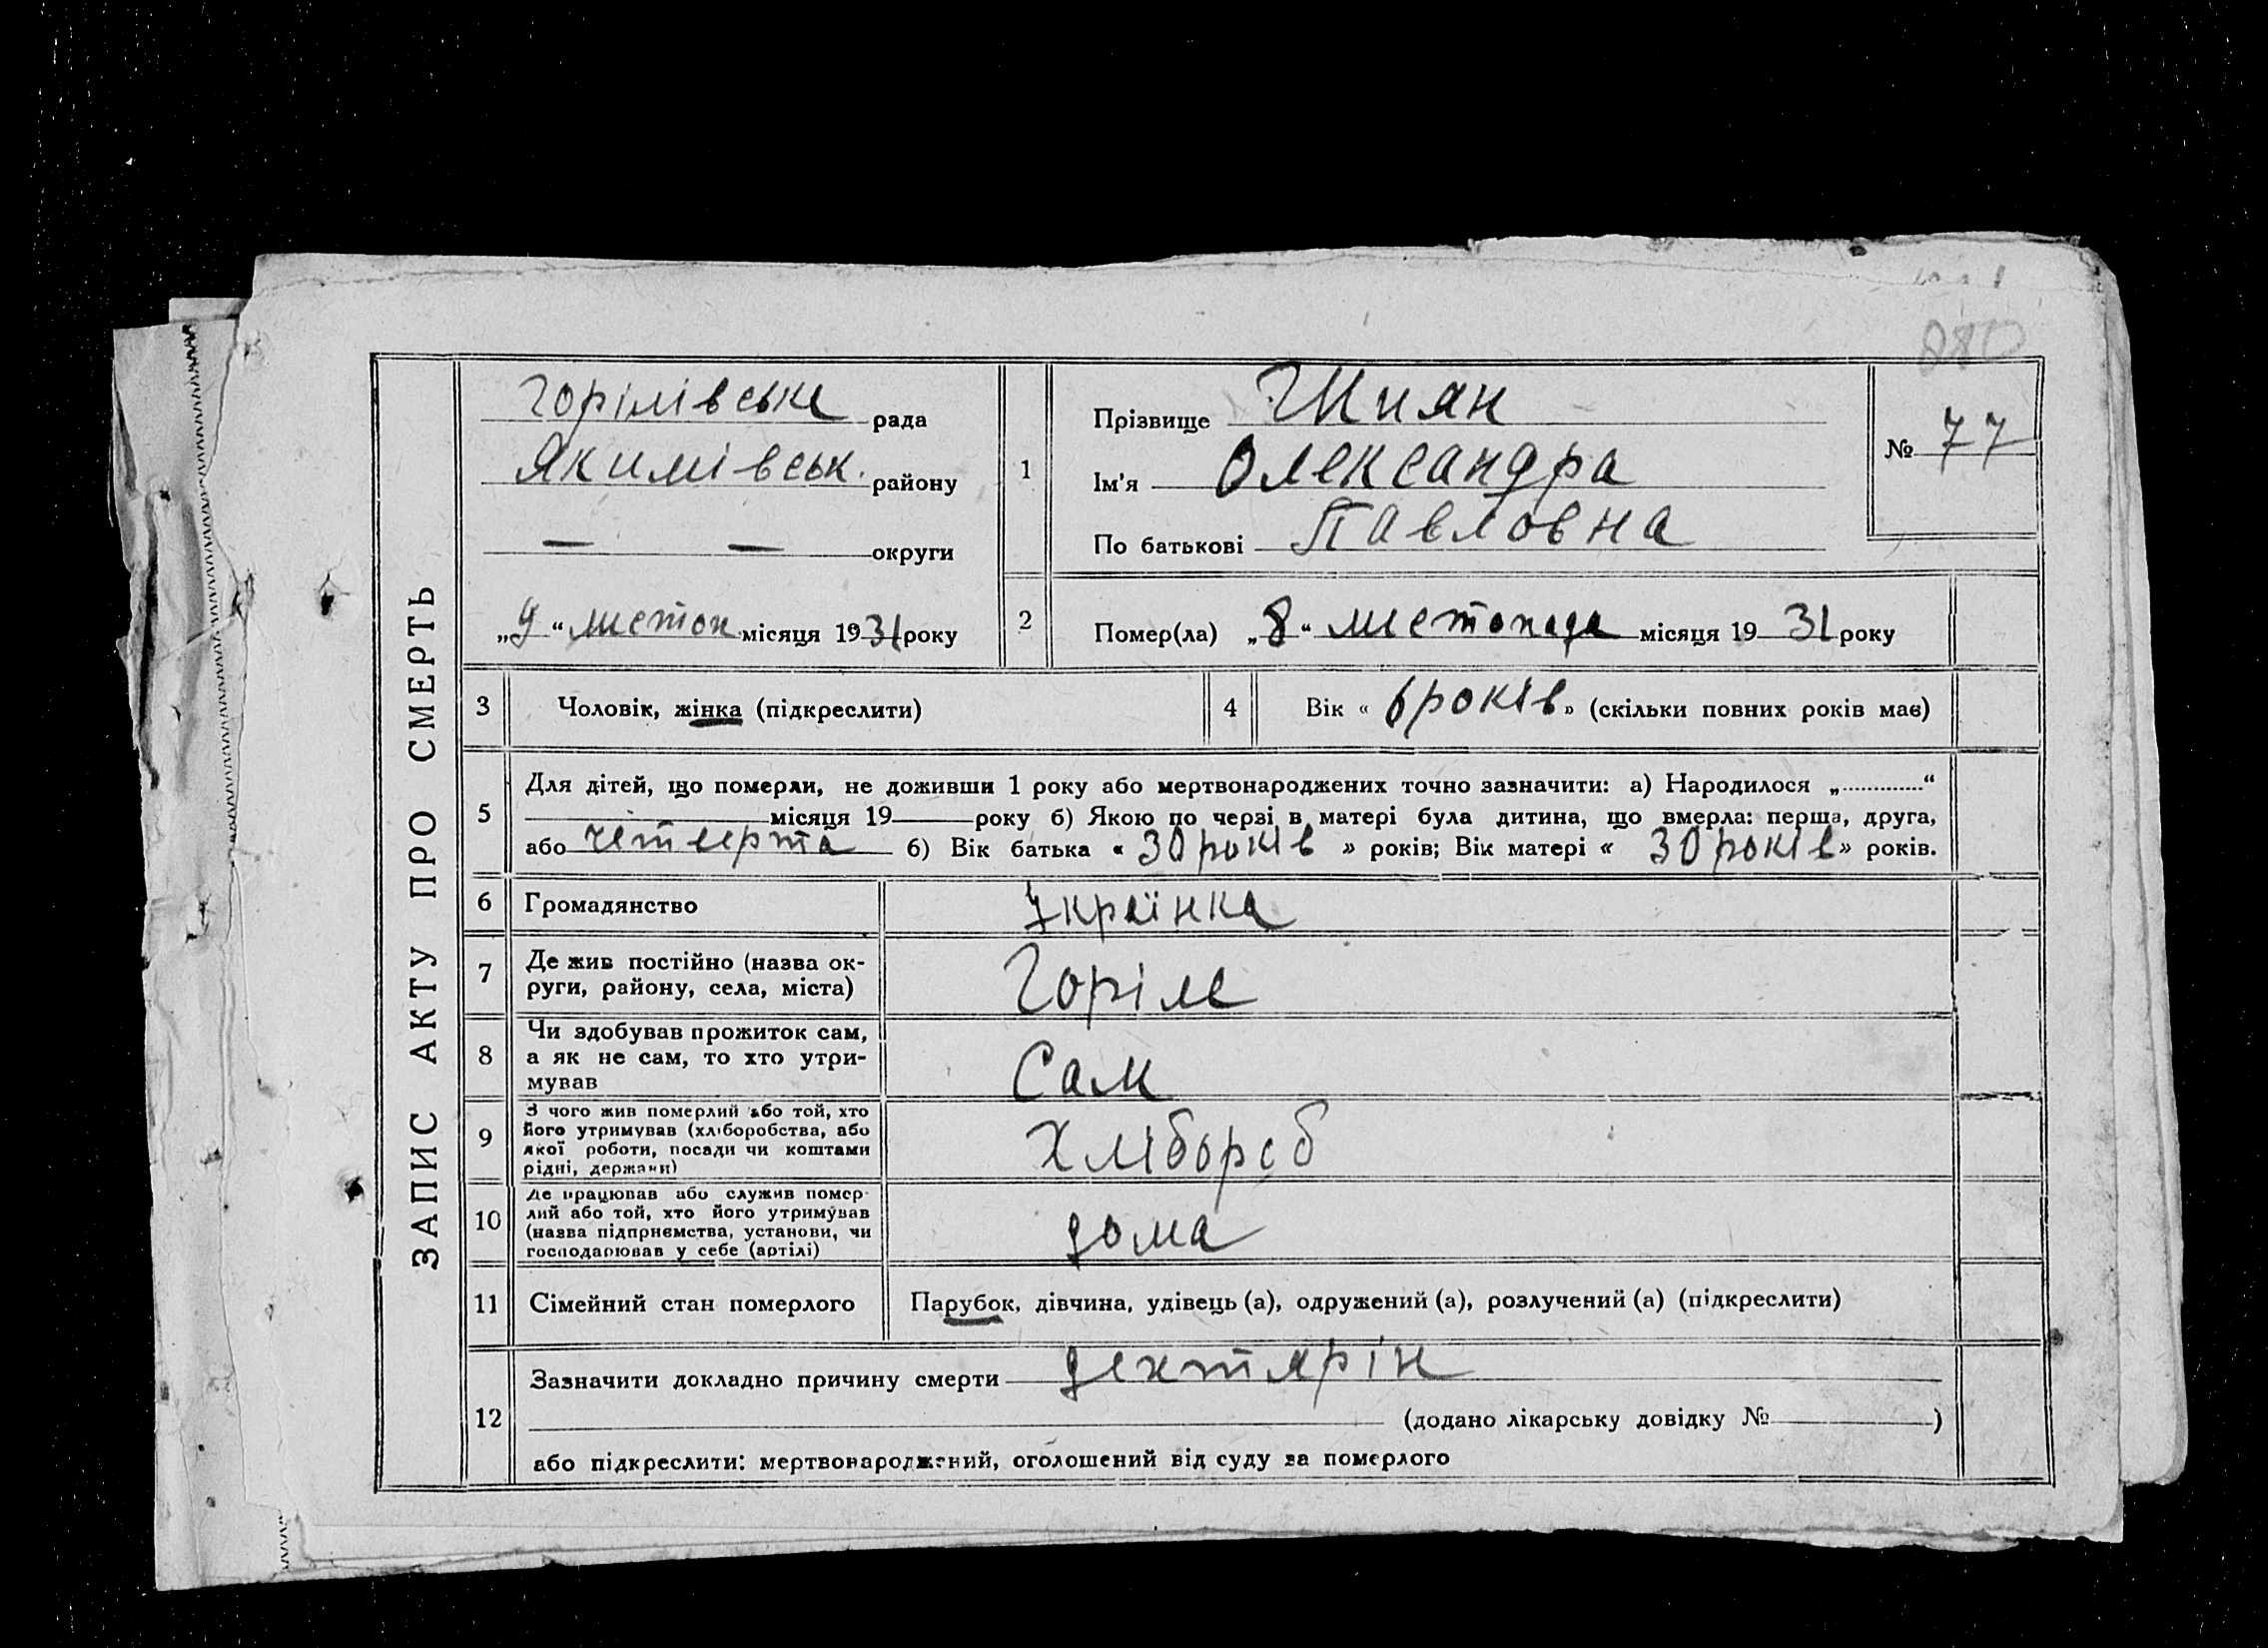 ЗАПИС АКТУ ПРО СМЕРТЬ
Горілівська рада
Якимівськ. району
— — округи
„9“ листоп місяця 1931 року
1
Прізвище Шиян
Ім'я Олександра
По батькові Павловна
№ 77
2
Помер(ла) „8“ листопада місяця 1931 року
3 Чоловік, жінка (підкреслити)
4 Вік « 6 років » (скільки повних років має)
5
Для дітей, що померли, не доживши 1 року або мертвонароджених точно зазначити: а) Народилося „.............“
місяця 19 року б) Якою по черзі в матері була дитина, що вмерла: перша, друга,
або четверта 6) Вік батька « 30 років » років; Вік матері « 30 років » років.
6 Громадянство Українка
7 Де жив постійно (назва ок-
руги, району, села, міста) Горіле
8 Чи здобував прожиток сам,
а як не сам, то хто утри-
мував Сам
9 З чого жив померлий або той, хто
його утримував (хліборобства, або
якої роботи, посади чи коштами
рідні, держави) Хлібороб
10 Де працював або служив помер-
лий або той, хто його утримував
(назва підприємства, установи, чи
господарював у себе (артілі) дома
11 Сімейний стан померлого Парубок, дівчина, удівець (а), одружений (а), розлучений (а) (підкреслити)
12
Зазначити докладно причину смерти дехтярін
(додано лікарську довідку № )
або підкреслити: мертвонароджений, оголошений від суду за померлого